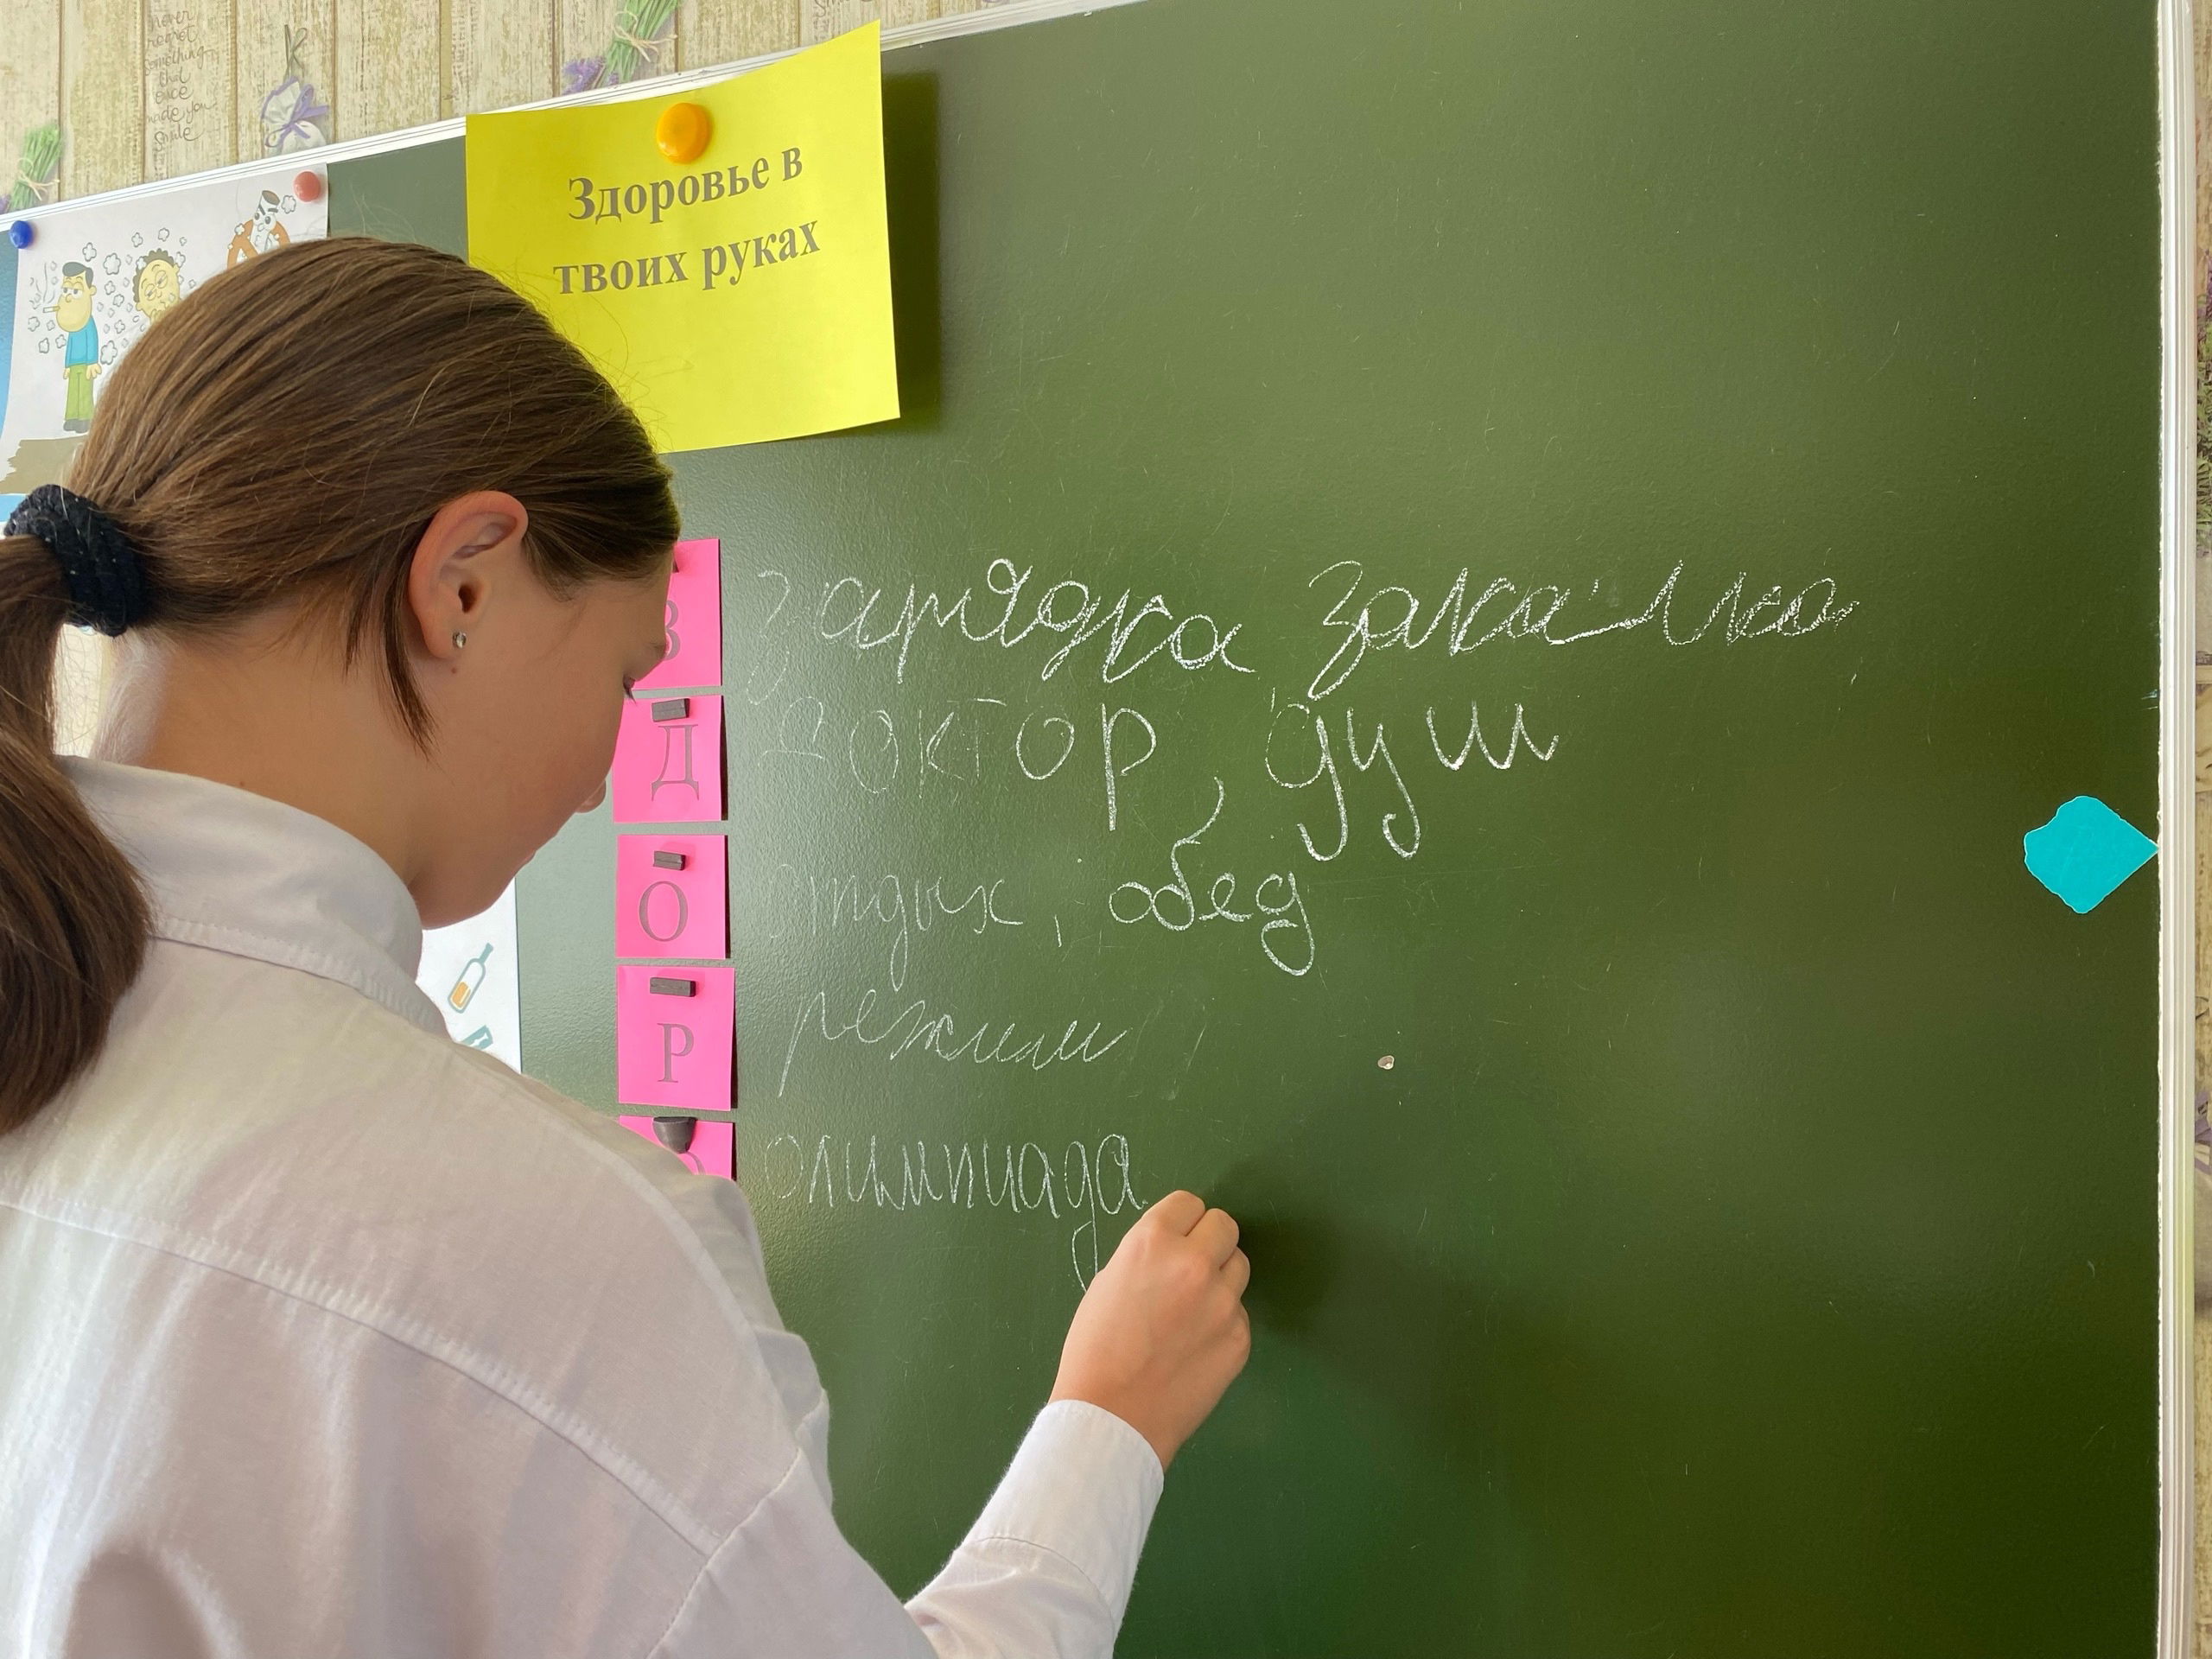 never
regret
something
that
once
made you
smile
Здоровье в
твоих руках
З зарядка закалка
Д доктор, душ
О отдых, обед
Р режим
О олимпиада